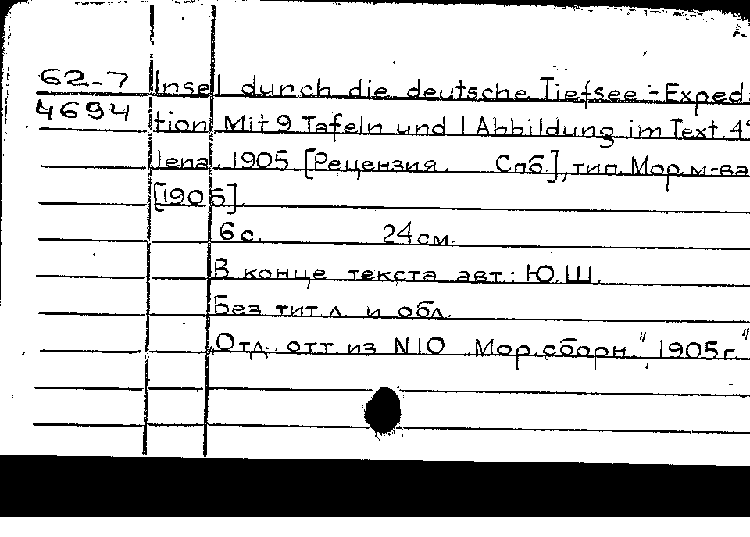 62-7 Insel durch die deutsche Tiefsee-Exped
4694 tion Mit 9 Tafeln und 1 Abbildung im Text 4°
Jena, 1905 [Рецензия. Спб.], тип. Мор. м-ва
[1905]
6 с. 24 см.
В конце текста авт.: Ю.Ш.
Без тит л. и обл.
Отд. отт из N10 „Мор. сборн." 1905 г."